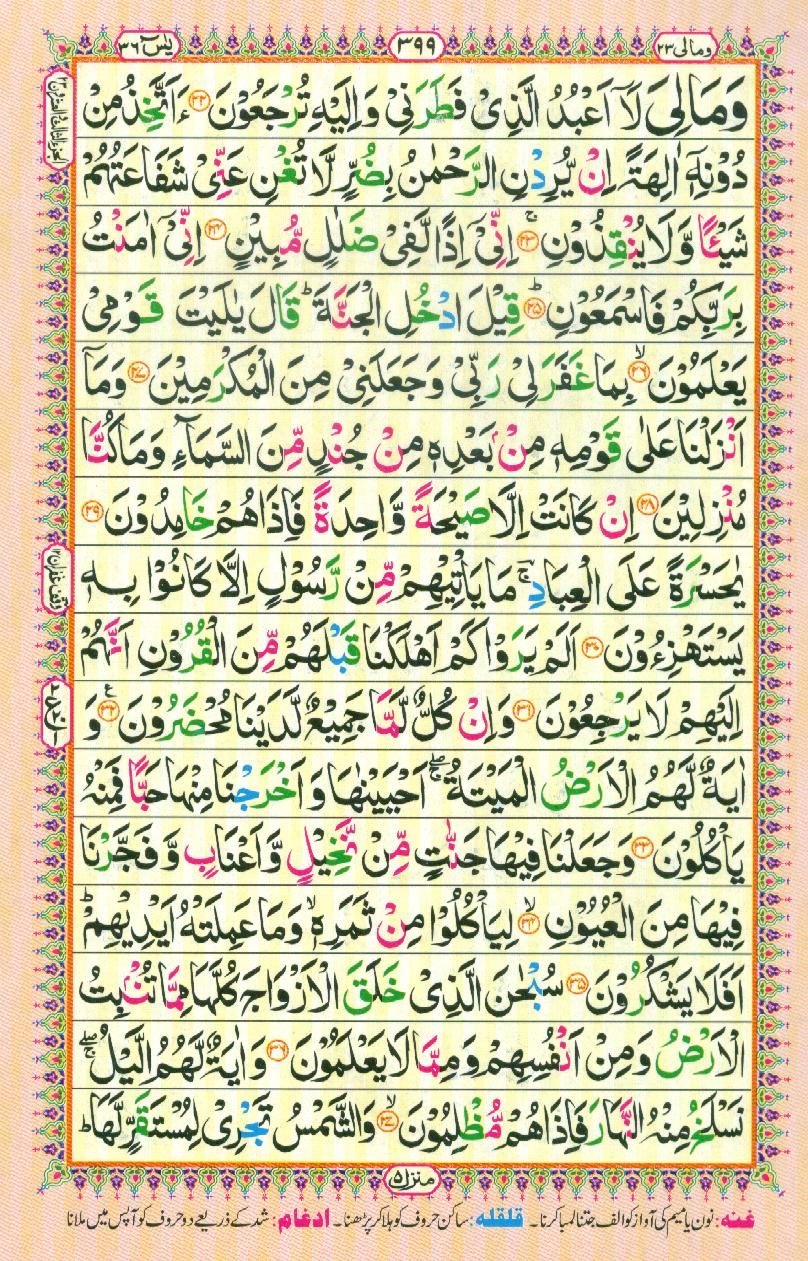 یٰسٓ ۳۶
۳۹۹
ومالی ۲۳
وَمَالِیَ لَاۤ اَعْبُدُ الَّذِیْ فَطَرَنِیْ وَاِلَیْهِ تُرْجَعُوْنَ ۝۲۲ ءَاَتَّخِذُ مِنْ
دُوْنِهٖۤ اٰلِهَةً اِنْ یُّرِدْنِ الرَّحْمٰنُ بِضُرٍّ لَّا تُغْنِ عَنِّیْ شَفَاعَتُهُمْ
شَیْـًٔا وَّلَا یُنْقِذُوْنِ ۝۲۳ۚ اِنِّیْۤ اِذًا لَّفِیْ ضَلٰلٍ مُّبِیْنٍ ۝۲۴ اِنِّیْۤ اٰمَنْتُ
بِرَبِّكُمْ فَاسْمَعُوْنِ ۝۲۵ؕ قِیْلَ ادْخُلِ الْجَنَّةَ ؕ قَالَ یٰلَیْتَ قَوْمِیْ
یَعْلَمُوْنَ ۝۲۶ۙ بِمَا غَفَرَ لِیْ رَبِّیْ وَجَعَلَنِیْ مِنَ الْمُكْرَمِیْنَ ۝۲۷ وَمَاۤ
اَنْزَلْنَا عَلٰی قَوْمِهٖ مِنْۢ بَعْدِهٖ مِنْ جُنْدٍ مِّنَ السَّمَآءِ وَمَا كُنَّا
مُنْزِلِیْنَ ۝۲۸ اِنْ كَانَتْ اِلَّا صَیْحَةً وَّاحِدَةً فَاِذَا هُمْ خَامِدُوْنَ ۝۲۹
یٰحَسْرَةً عَلَی الْعِبَادِ ۚ مَا یَاْتِیْهِمْ مِّنْ رَّسُوْلٍ اِلَّا كَانُوْا بِهٖ
یَسْتَهْزِءُوْنَ ۝۳۰ اَلَمْ یَرَوْا كَمْ اَهْلَكْنَا قَبْلَهُمْ مِّنَ الْقُرُوْنِ اَنَّهُمْ
اِلَیْهِمْ لَا یَرْجِعُوْنَ ۝۳۱ وَاِنْ كُلٌّ لَّمَّا جَمِیْعٌ لَّدَیْنَا مُحْضَرُوْنَ ۝۳۲ وَ
اٰیَةٌ لَّهُمُ الْاَرْضُ الْمَیْتَةُ ۚۖ اَحْیَیْنٰهَا وَاَخْرَجْنَا مِنْهَا حَبًّا فَمِنْهُ
یَاْكُلُوْنَ ۝۳۳ وَجَعَلْنَا فِیْهَا جَنّٰتٍ مِّنْ نَّخِیْلٍ وَّاَعْنَابٍ وَّفَجَّرْنَا
فِیْهَا مِنَ الْعُیُوْنِ ۝۳۴ۙ لِیَاْكُلُوْا مِنْ ثَمَرِهٖ ۙ وَمَا عَمِلَتْهُ اَیْدِیْهِمْ ؕ
اَفَلَا یَشْكُرُوْنَ ۝۳۵ سُبْحٰنَ الَّذِیْ خَلَقَ الْاَزْوَاجَ كُلَّهَا مِمَّا تُنْۢبِتُ
الْاَرْضُ وَمِنْ اَنْفُسِهِمْ وَمِمَّا لَا یَعْلَمُوْنَ ۝۳۶ وَاٰیَةٌ لَّهُمُ الَّیْلُ ۚۖ
نَسْلَخُ مِنْهُ النَّهَارَ فَاِذَا هُمْ مُّظْلِمُوْنَ ۝۳۷ۙ وَالشَّمْسُ تَجْرِیْ لِمُسْتَقَرٍّ لَّهَا ؕ
منزل ۵
غنه: نون یا میم کی آواز کو الف جتنا لمبا کرنا۔ قلقله: ساکن حروف کو ہلا کر پڑھنا۔ ادغام: شد کے ذریعے دو حروف کو آپس میں ملانا